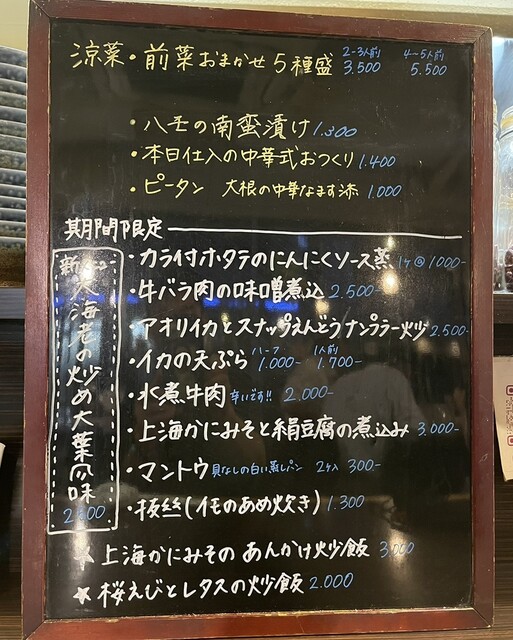 涼菜・前菜おまかせ5種盛 2-3人前 3.500 4~5人前 5.500
・ハモの南蛮漬け 1.300
・本日仕入の中華式おつくり 1.400
・ピータン 大根の中華なます添 1.000
期間限定
・カラ付ホタテのにんにくソース蒸 1ケ@1000-
・牛バラ肉の味噌煮込 2.500-
・アオリイカとスナップえんどうナンプラー炒 2.500-
・イカの天ぷら ハーフ 1.000- 1人前 1.700-
・水煮牛肉 辛いです!! 2.000-
・上海かにみそと絹豆腐の煮込み 3.000-
・マントウ 具なしの白い蒸しパン 2ケ入 300-
・抜絲(イモのあめ炊き) 1.300
★上海かにみその あんかけ炒飯 3.000
★桜えびとレタスの炒飯 2.000
大海老の炒め大葉風味